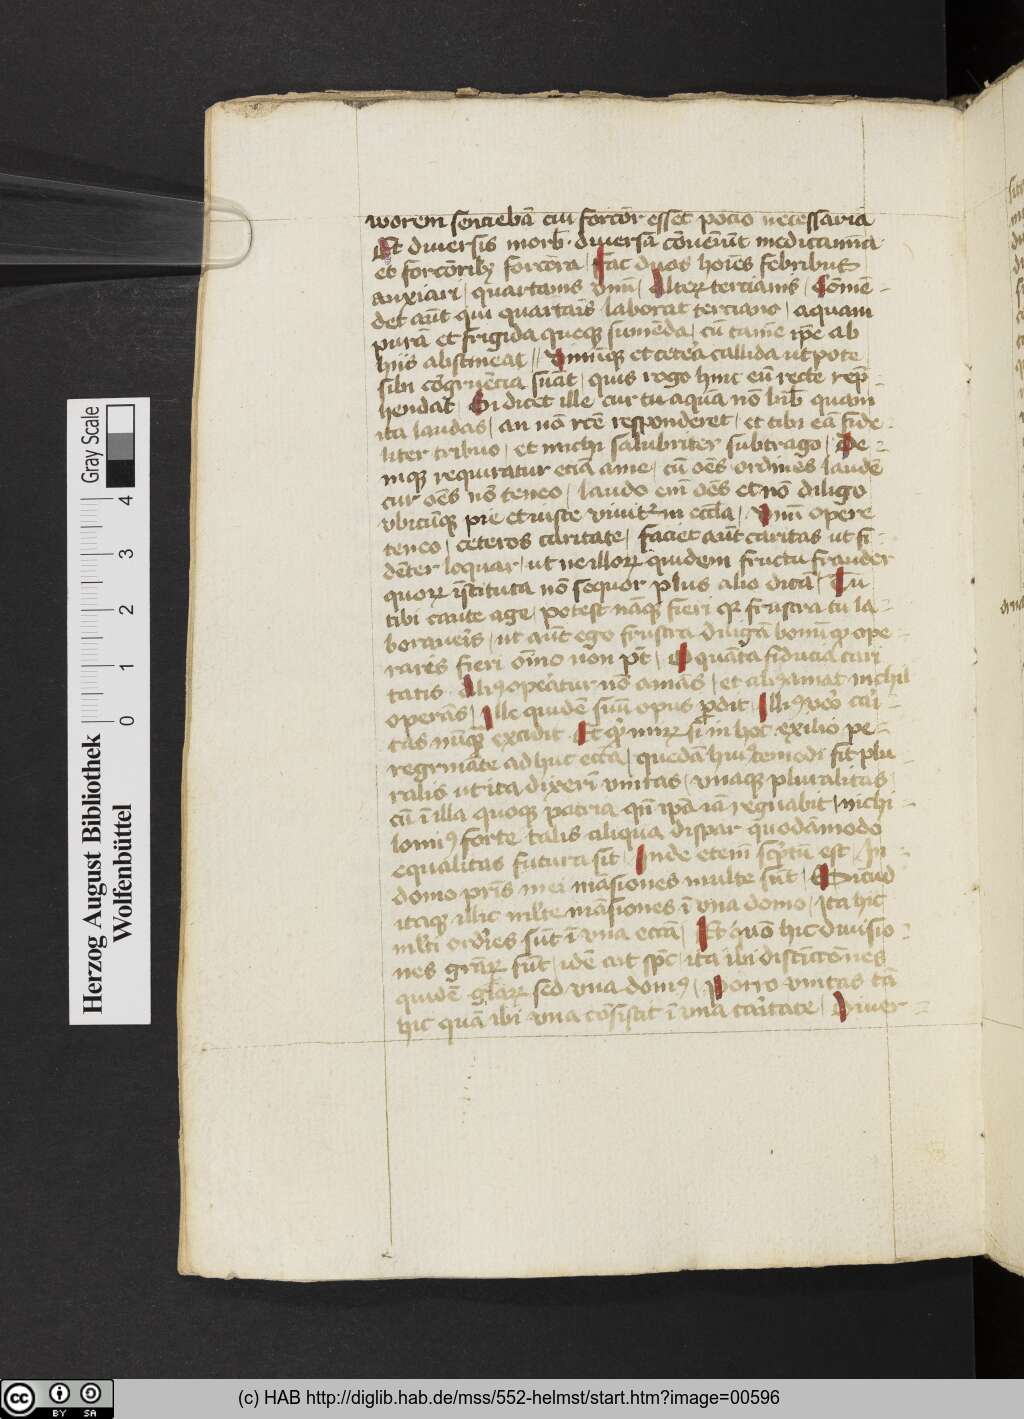 worem sencieba̅ cui forcior̅ esset pocio necessaria̅
Et diuersis morb̅ · diuersa̅ co̅ueniu̅t medicami̅a
et forcio̅ribꝫ forciora / fac duos hoi̅es febribus
anxiari / quartanis vnu̅ / alteꝝ tercianis / Co̅me̅-
det au̅t qui quarta̅is laborat terciano / aquam
pura̅ et frigida queqꝫ sume̅da / cu̅ tame̅ ip̅e ab
hijs abstineat // vinu̅qꝫ et cetera callida utpote
sibi co̅grue̅cia su̅at / quis rogo hinc eu̅ recte rep̅-
hendat / Si dicet ille cur tu aqua̅ no̅ bib̅ quam
ita laudas / an no̅ rc̅e responderet / et tibi ea̅ fide-
liter tribuo / et michi salubriter subtrago / De-
niqꝫ requiratur ecia̅ a me / cu̅ oe̅s ordines laude̅
cur oe̅s no̅ teneo / laudo em̅ oe̅s et no̅ diligo
vbicu̅qꝫ pie et iuste viuitᷣ in eccl̅a / vnu̅ opere
teneo / ceteros caritate / faciet au̅t caritas ut fi-
de̅ter loquar / ut ne illoꝝ quidem fructu frauder
quoꝝ i̅stituta no̅ sequor plus alio dica̅ / Tu
tibi caute age / potest na̅qꝫ fieri qꝫ frustra tu la-
boraueris / ut au̅t ego frustra diliga̅ bonu̅ qd ope-
raris fieri oi̅no non pt̅ / O qua̅ta fiducia cari
tatis · Aliꝰ operatur no̅ ama̅s / et aliꝰ amat nichil
opera̅s / Ille quide̅ suu̅ opus pdit / Illiꝰ vero ca̅i-
tas nu̅qꝫ excidit · Et qd miꝝ si in hoc exilio pe-
regrina̅te adhuc ecc̅a / queda̅ huiꝰcemodi sit plu
ralis ut ita dixeri̅ vnitas / vnaqꝫ pluralitas
cu̅ i̅ illa quoqꝫ patria qn̅ ip̅a ia̅ regnabit / nichi-
lomiꝰ forte talis aliqua dispar quoda̅modo
equalitas futura sit / Inde eteni̅ scptu̅ est / In-
domo pr̅is mei ma̅siones multe su̅t / Sicud
itaqꝫ illic ml̅te ma̅siones i̅ vna domo / ita hic
ml̅ti ordi̅es su̅t i̅ vna ecc̅a / Et quo̅ hic diuisio-
nes gra̅ꝝ su̅t / ide̅ aut sp̅c / ita ibi disti̅ctio̅nes
quide̅ gl̅aꝝ sed vna domꝰ / Porro vnitas ta̅
hic qua̅ ibi vna co̅sistit i̅ vna caritate / Diuer-
Herzog August Bibliothek
Wolfenbüttel
0 1 2 3 4
Gray Scale
cc BY SA
(c) HAB http://diglib.hab.de/mss/552-helmst/start.htm?image=00596